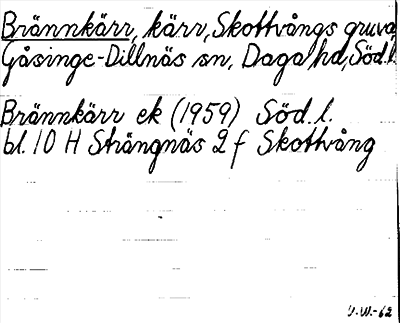 Brännkärr, kärr, Skottvångs gruva,
Gåsinge-Dillnäs sn, Daga hd, Söd.l.
Brännkärr ek (1959) Söd. l.
bl. 10 H Strängnäs 2 f Skottvång
V.W.-62